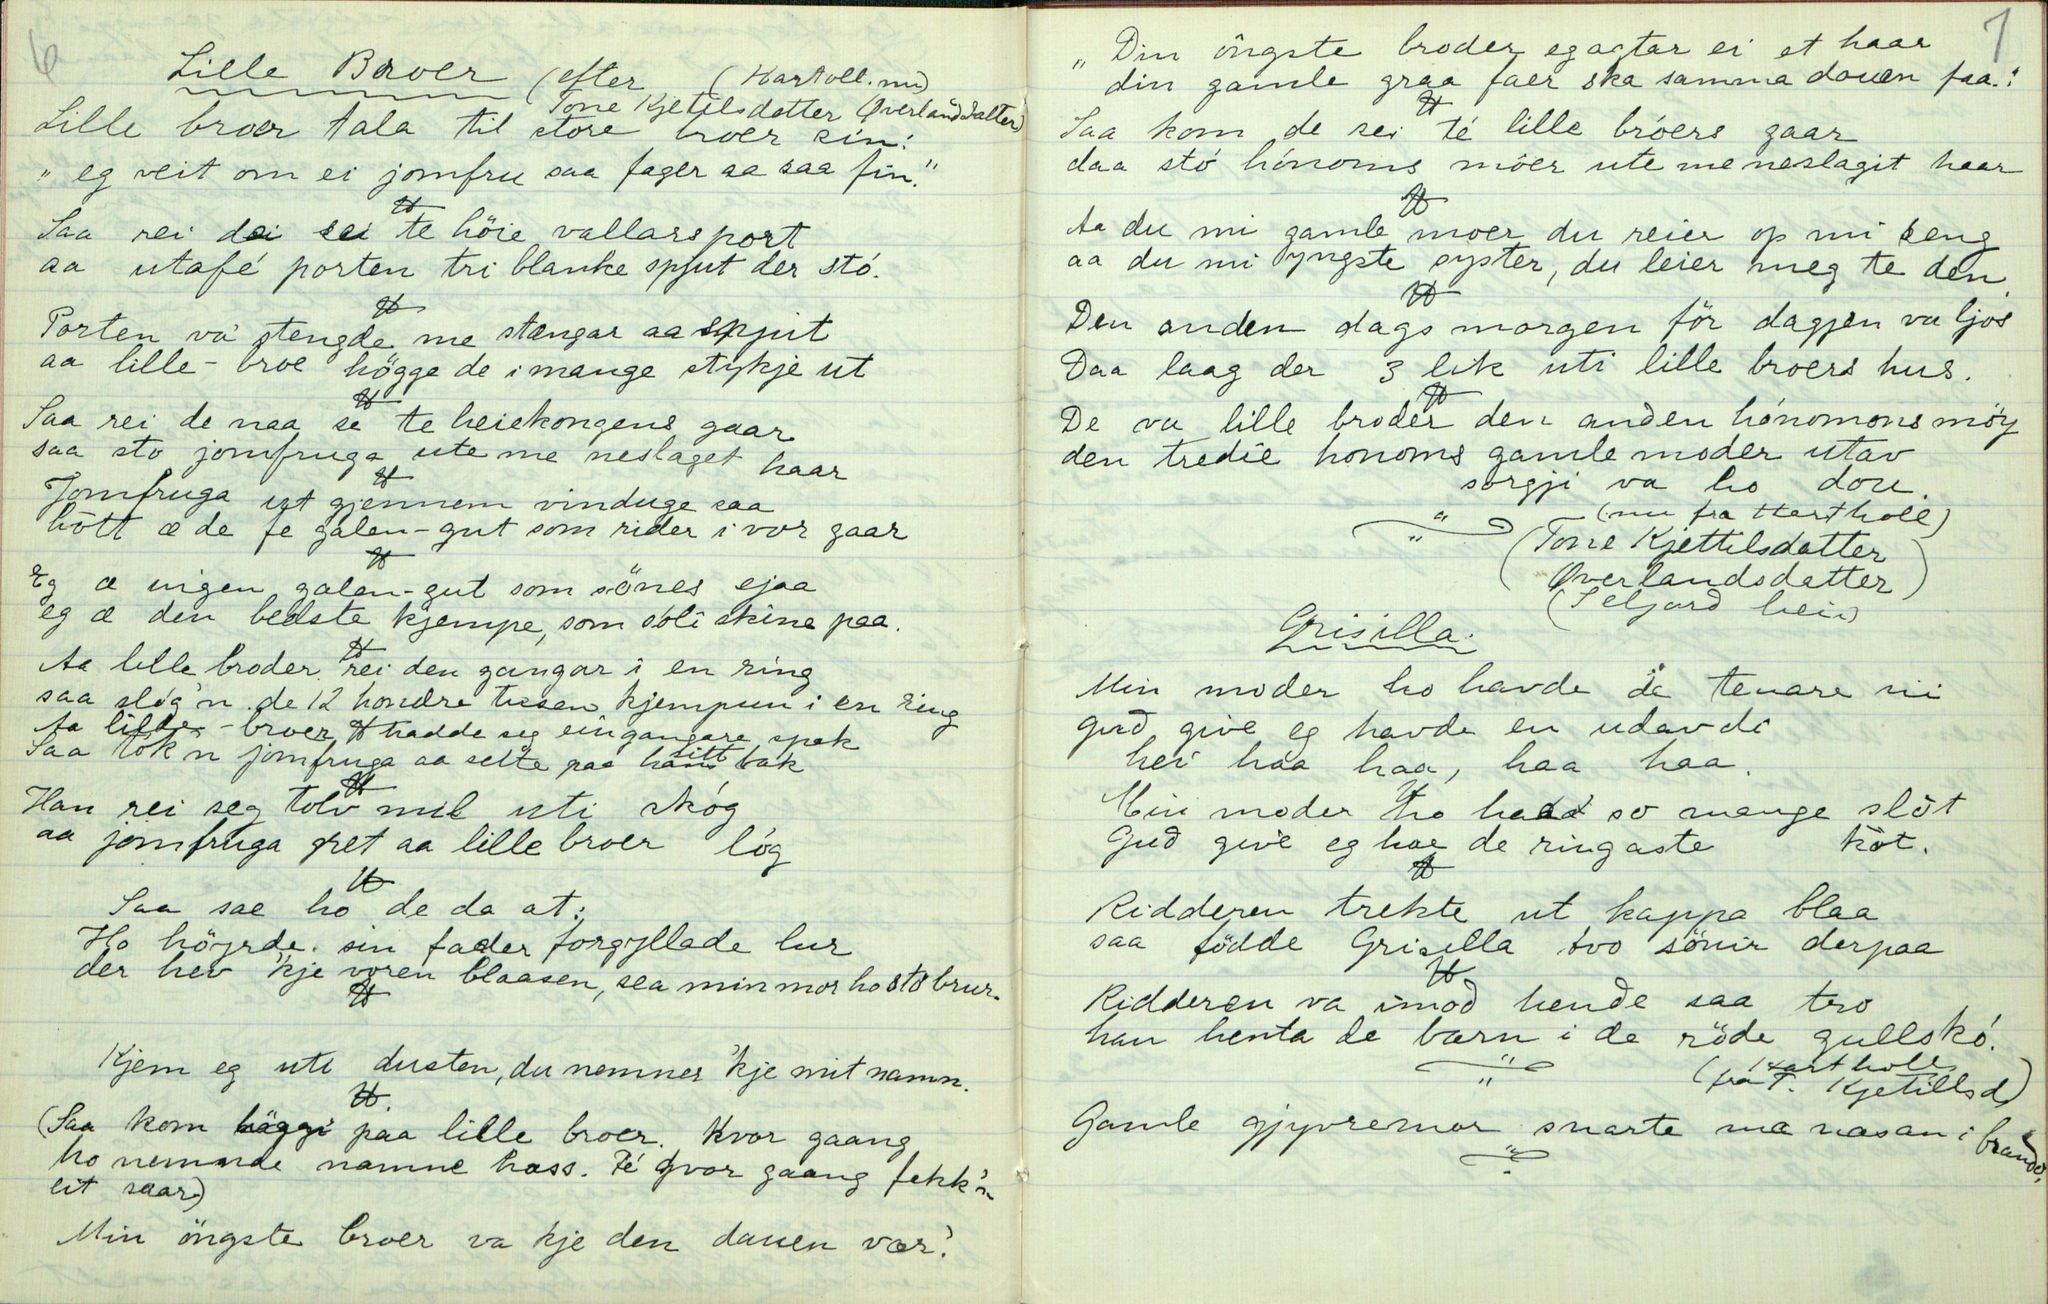 6
Lille Broer (efter (Hartoll. nu)
Tone Kjetilsdatter Øverlandsdatter)
Lille broer tala til store broer sin:
„ eg veit om ei jomfru saa fager aa saa fin."
Saa rei dei sei te höie vallars port
aa utafé porten tri blanke spjut der stó.
Porten va stengde me stængar aa spjut
aa lille-broe högge de i mange stykje ut
Saa rei de naa se te heiekongens gaar
saa sto jomfruga ute me neslaget haar
Jomfruga ut gjennem vinduge saa
hött æ de fe galen-gut som rider i vor gaar
Eg æ ingen galen-gut som sönes ejaa
eg æ den bedste kjempe, som sóli skine paa.
Aa lille broder rei den gangar i en ring
saa slóg'n de 12 hondre tusen kjempun i en ring
Aa lille-broer hadde seg ein gangare spak
Saa tok'n jomfruga aa sette paa sitt bak
Han rei seg tolv mil uti skóg
aa jomfruga gret aa lille broer lóg
Saa sae ho de da at:
Ho höyrde sin fader forgyllade lur
der hev 'kje voren blaasen, sea min mor ho stó brur.
Kjem eg uti dusten, du nemner 'kje mit namn.
(Saa kom häggi paa lille broer. Kvor gaang
ho nemnde namne hass. Fé qvor gaang fekk'n
eit saar)
Min öngste broer va kje den dauen vær!
7
„ Din öngste broder eg agtar ei et haar
din gamle graa faer ska samma douen faa."
Saa kom de sei té lille bróers gaar
daa stó hónoms móer ute me neslagit haar
Aa du mi gamle moer du reier op mi seng
aa du mi yngste syster, du leier meg te den.
Den anden dags morgen för dagjen va ljos
Daa laag der 3 lik uti lille broers hus.
De va lille broder den anden hónomons möy
den tredie honoms gamle moder utav
sorgji va ho dou.
(nu fra Harthóll)
(Tone Kjettilsdatter
Øverlandsdatter)
(Seljord hei)
Grisilla.
Min moder ho havde de tenare ni
gud give eg havde en udav di
hei haa haa, haa haa.
Min moder ho had so mange slöt
Gud give eg hae de ringaste köt.
Ridderen trekte ut kappa blaa
saa födde Grisella tvo sönir derpaa
Ridderen va imod hende saa tro
han henta de bærn i de röde gullskó.
(Hartholl
fra T. Kjetillsd)
Gamle gjyvremor snarte mæ nasan i brando.